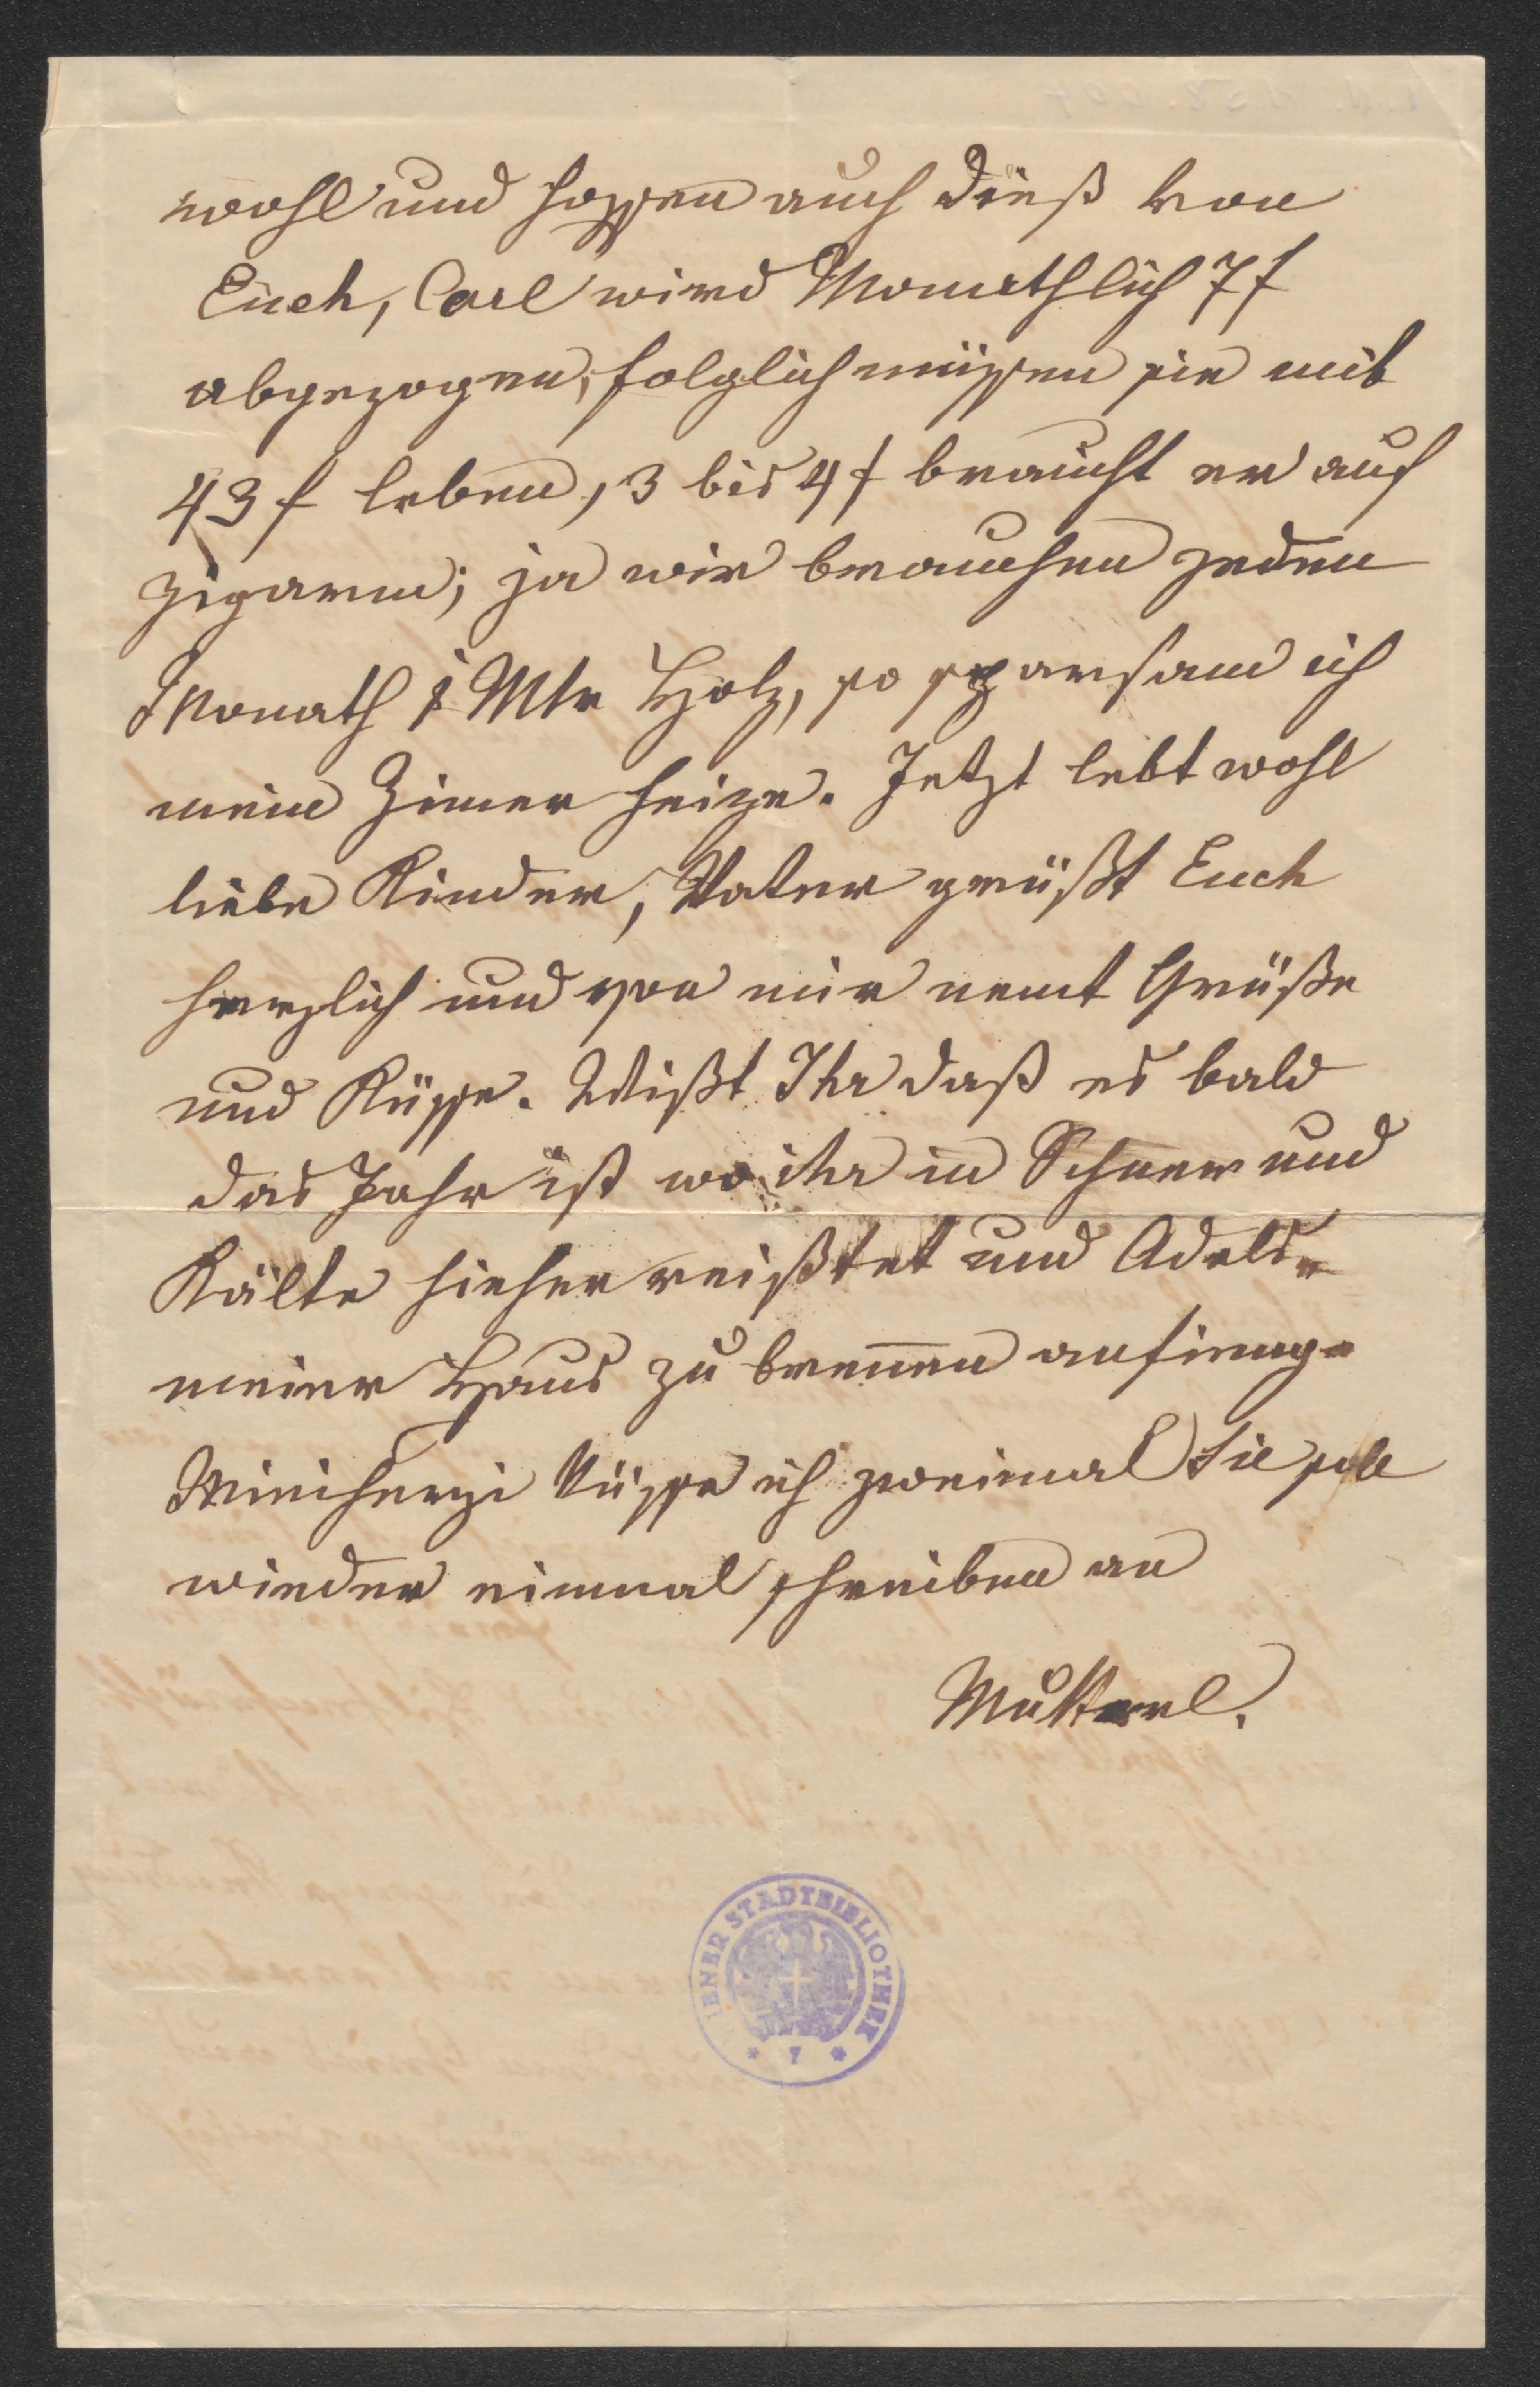 wohl und hoffen auch dieß von
Euch, Carl wird Monathlich 7 f
abgezogen, folglich müssen sie mit
43 f leben, 3 bis 4 f braucht er auf
Zigarren; ja wir brauchen jeden
Monath 1 Mtr Holz, so sparsam ich
meine Zimer heize. Jetzt lebt wohl
liebe Kinder, Vater grüßt Euch
herzlich und von mir nemt Grüße
und Küsse. Wißt Ihr daß es bald
das Jahr ist wo ihr in Schnee und
Kälte hieher reißtet und
Haus zu brennen anfing.
küsse ich zweimal sie soll
wieder einmal schreiben an
Mutterl.
WIENER STADTBIBLIOTHEK
* 7 *